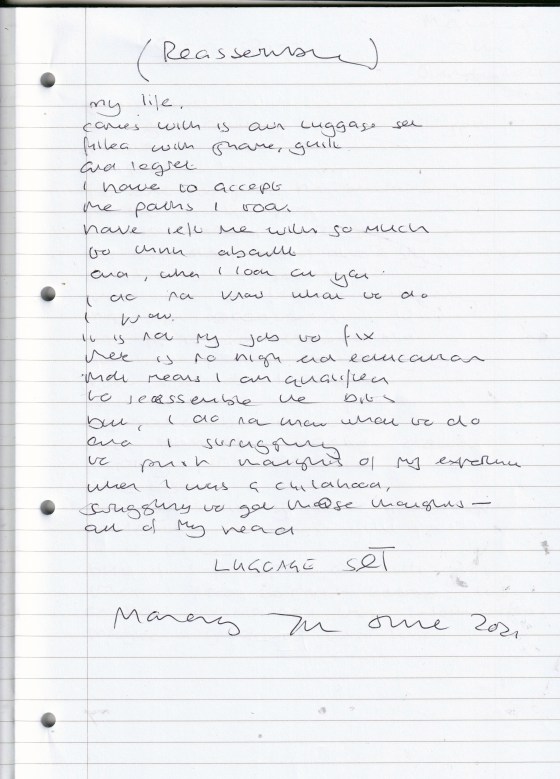 (Reassembly)
my life.
comes with is own luggage set
filled with shame, guilt
and regret
I have to accept
the paths I took.
have left me with so much
to think about
and, when I look at you.
I do not know what to do
I
it is not my job to fix
there is no high end education
that means I am qualified
to reassemble the bits
but, I do not know what to do
and I struggling
to push thoughts of my
when I was a childhood,
struggling to get those thoughts —
out of my head
LUGGAGE SET
7th June 2021